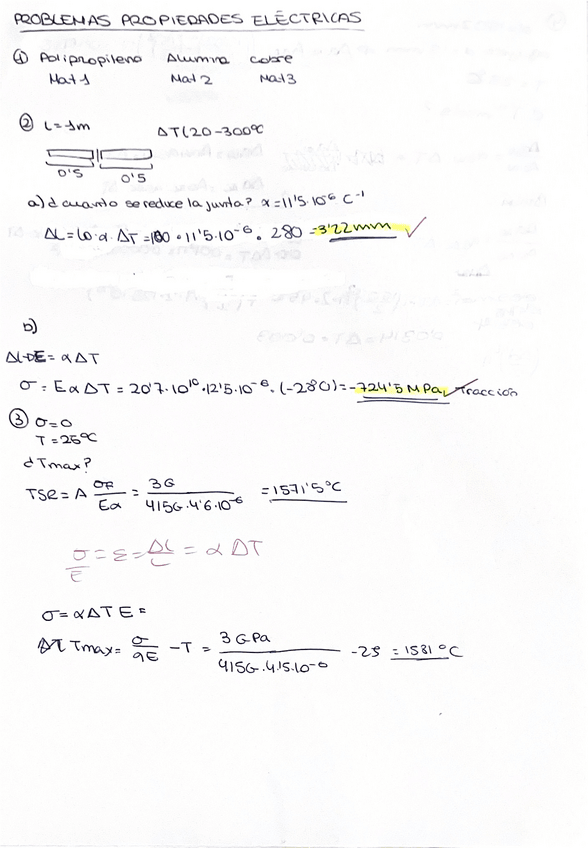 PROBLEMAS PROPIEDADES ELÉCTRICAS
① Polipropileno Alumina cobre
Mat 1 Mat 2 Mat 3
② L = 1m ΔT(20-300°C
0'5 0'5
a) ¿ cuanto se reduce la junta? α = 11'5·10⁻⁶ C⁻¹
ΔL = L0·α·ΔT = 100·11'5·10⁻⁶·280 = 3'22 mm ✓
b)
= αΔT
σ = EαΔT = 20'7·10¹⁰·12'5·10⁻⁶·(-280) = -724'5 MPa ✓ Tracción
③ σ = 0
T = 25°C
¿Tmax?
TSR = A σF/Eα = 3G/415G·4'6·10⁻⁶ = 1571'5°C
σ/E = ε = ΔL/L = α ΔT
σ = αΔT E =
Tmax = σ/αE - T = 3 GPa/415G·4'15·10⁻⁶ - 25 = 1581 °C